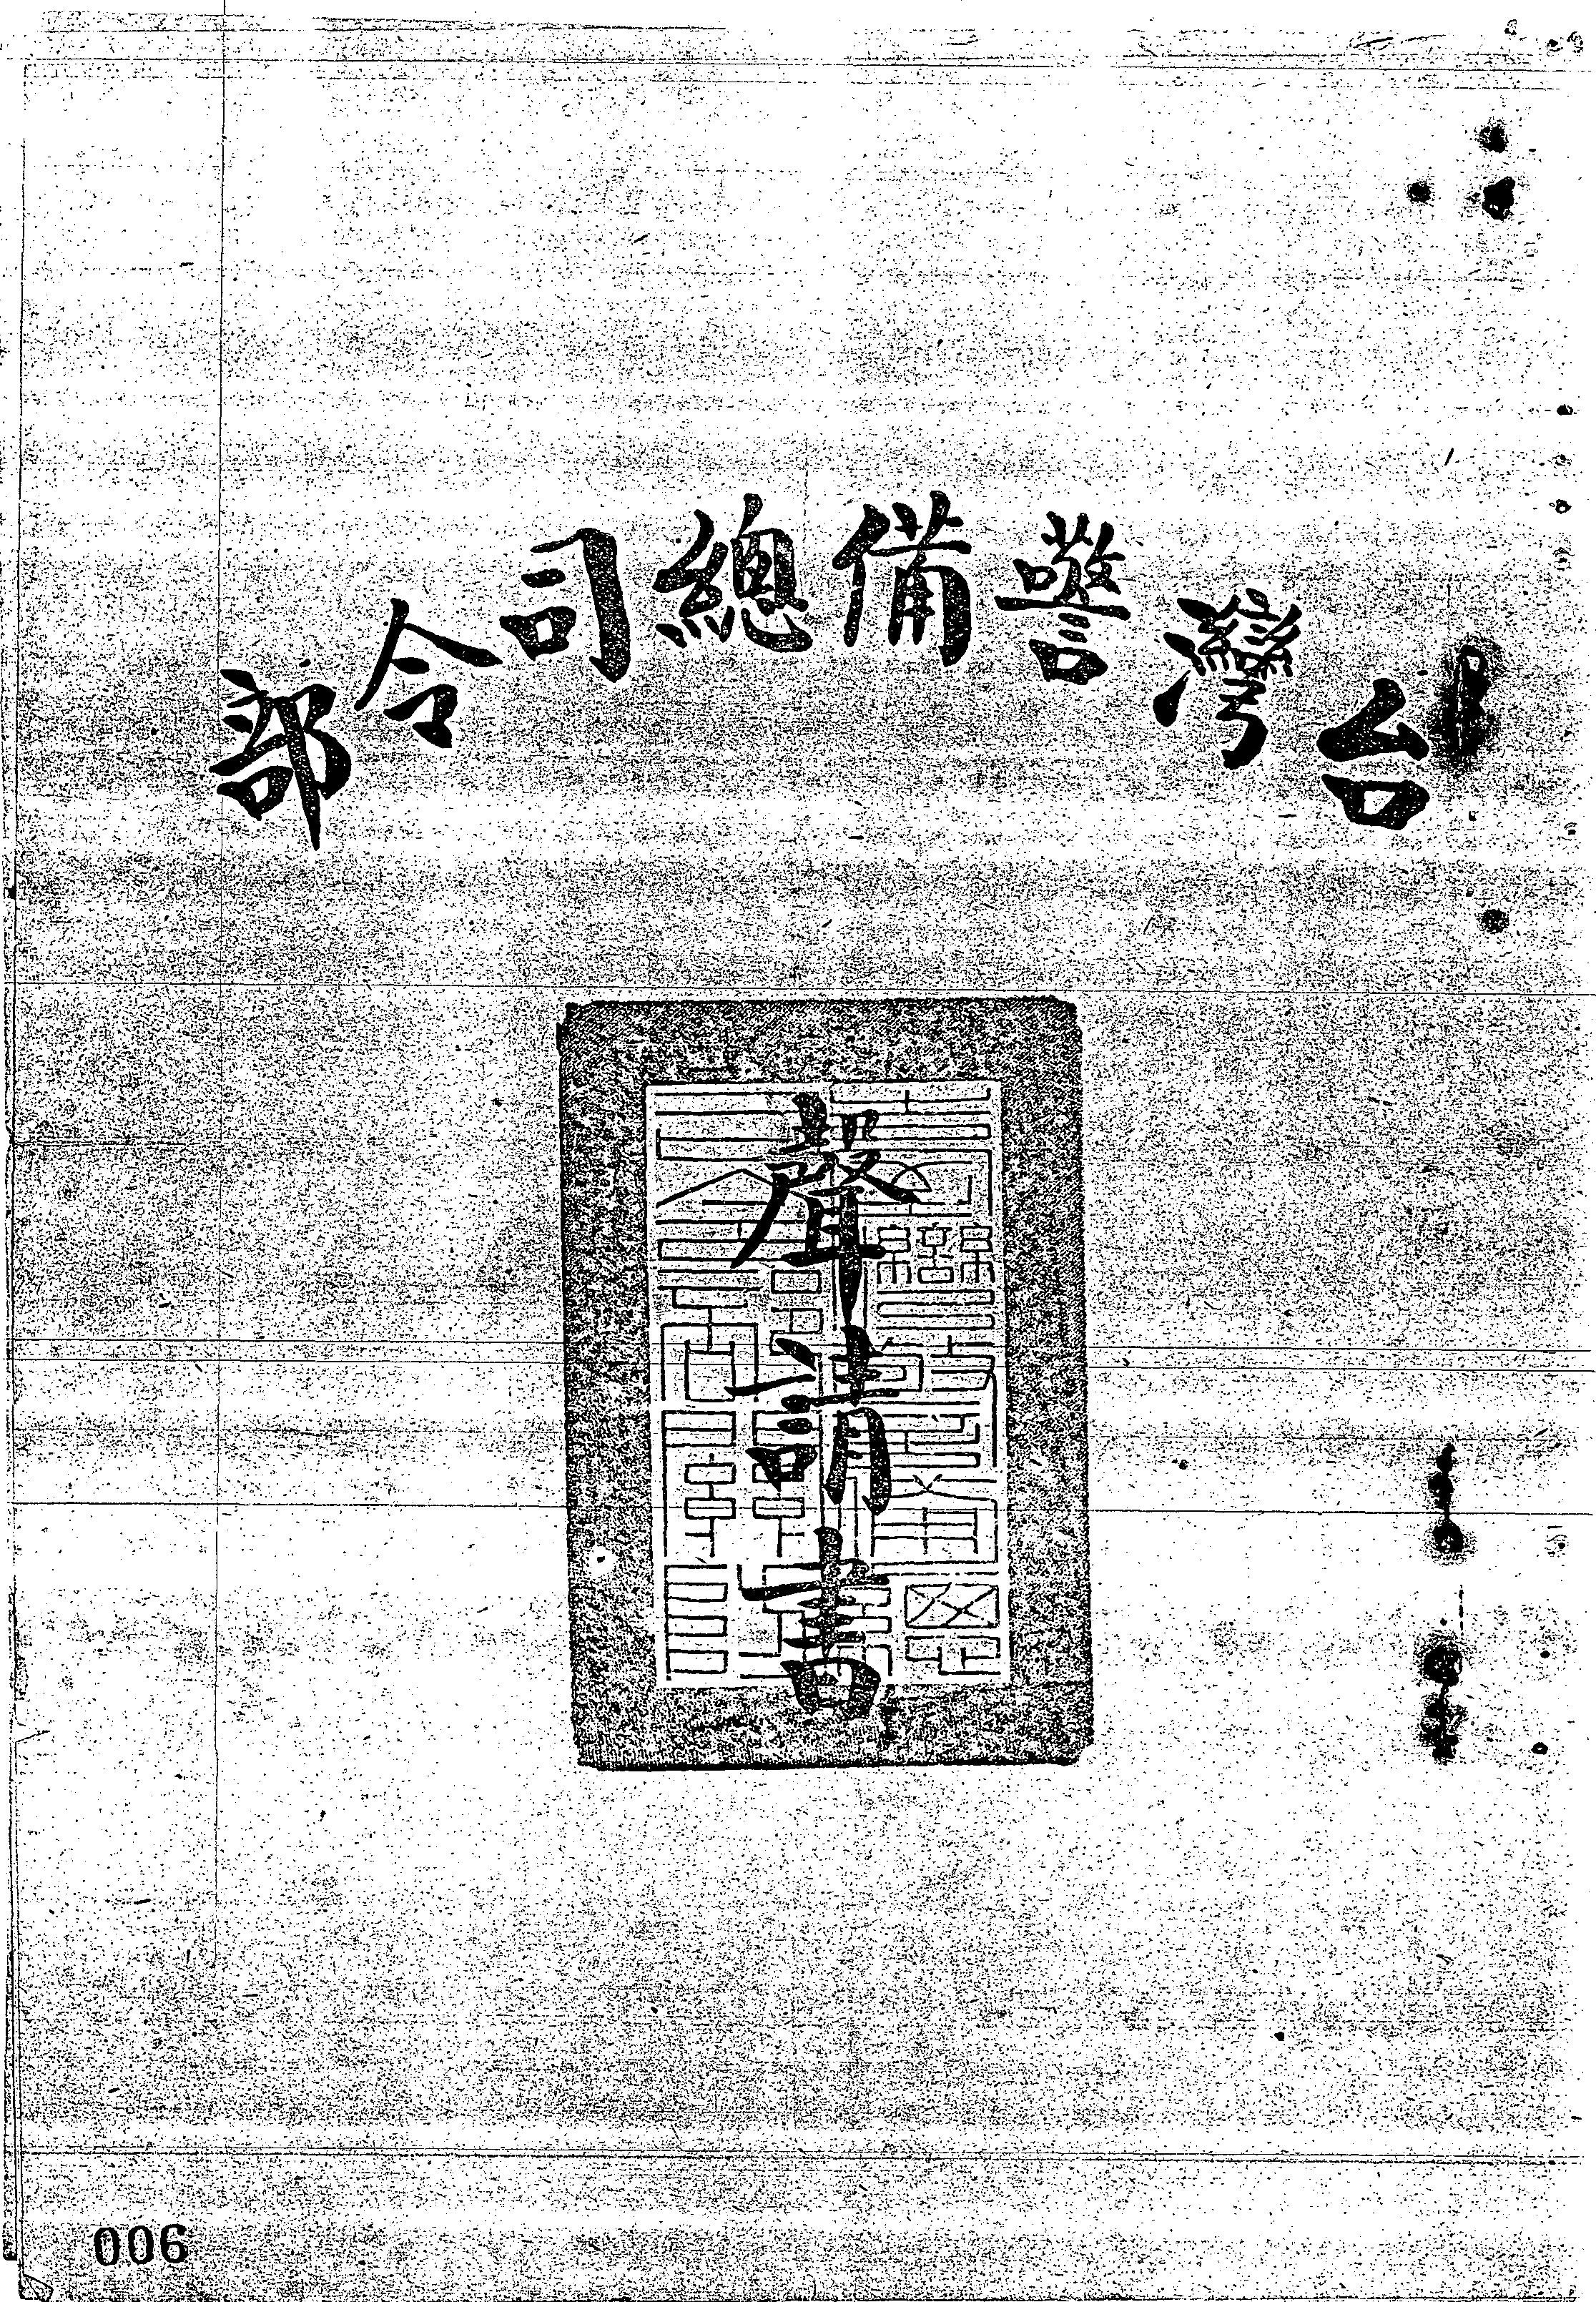 台灣警備總司令部
聲請書
006